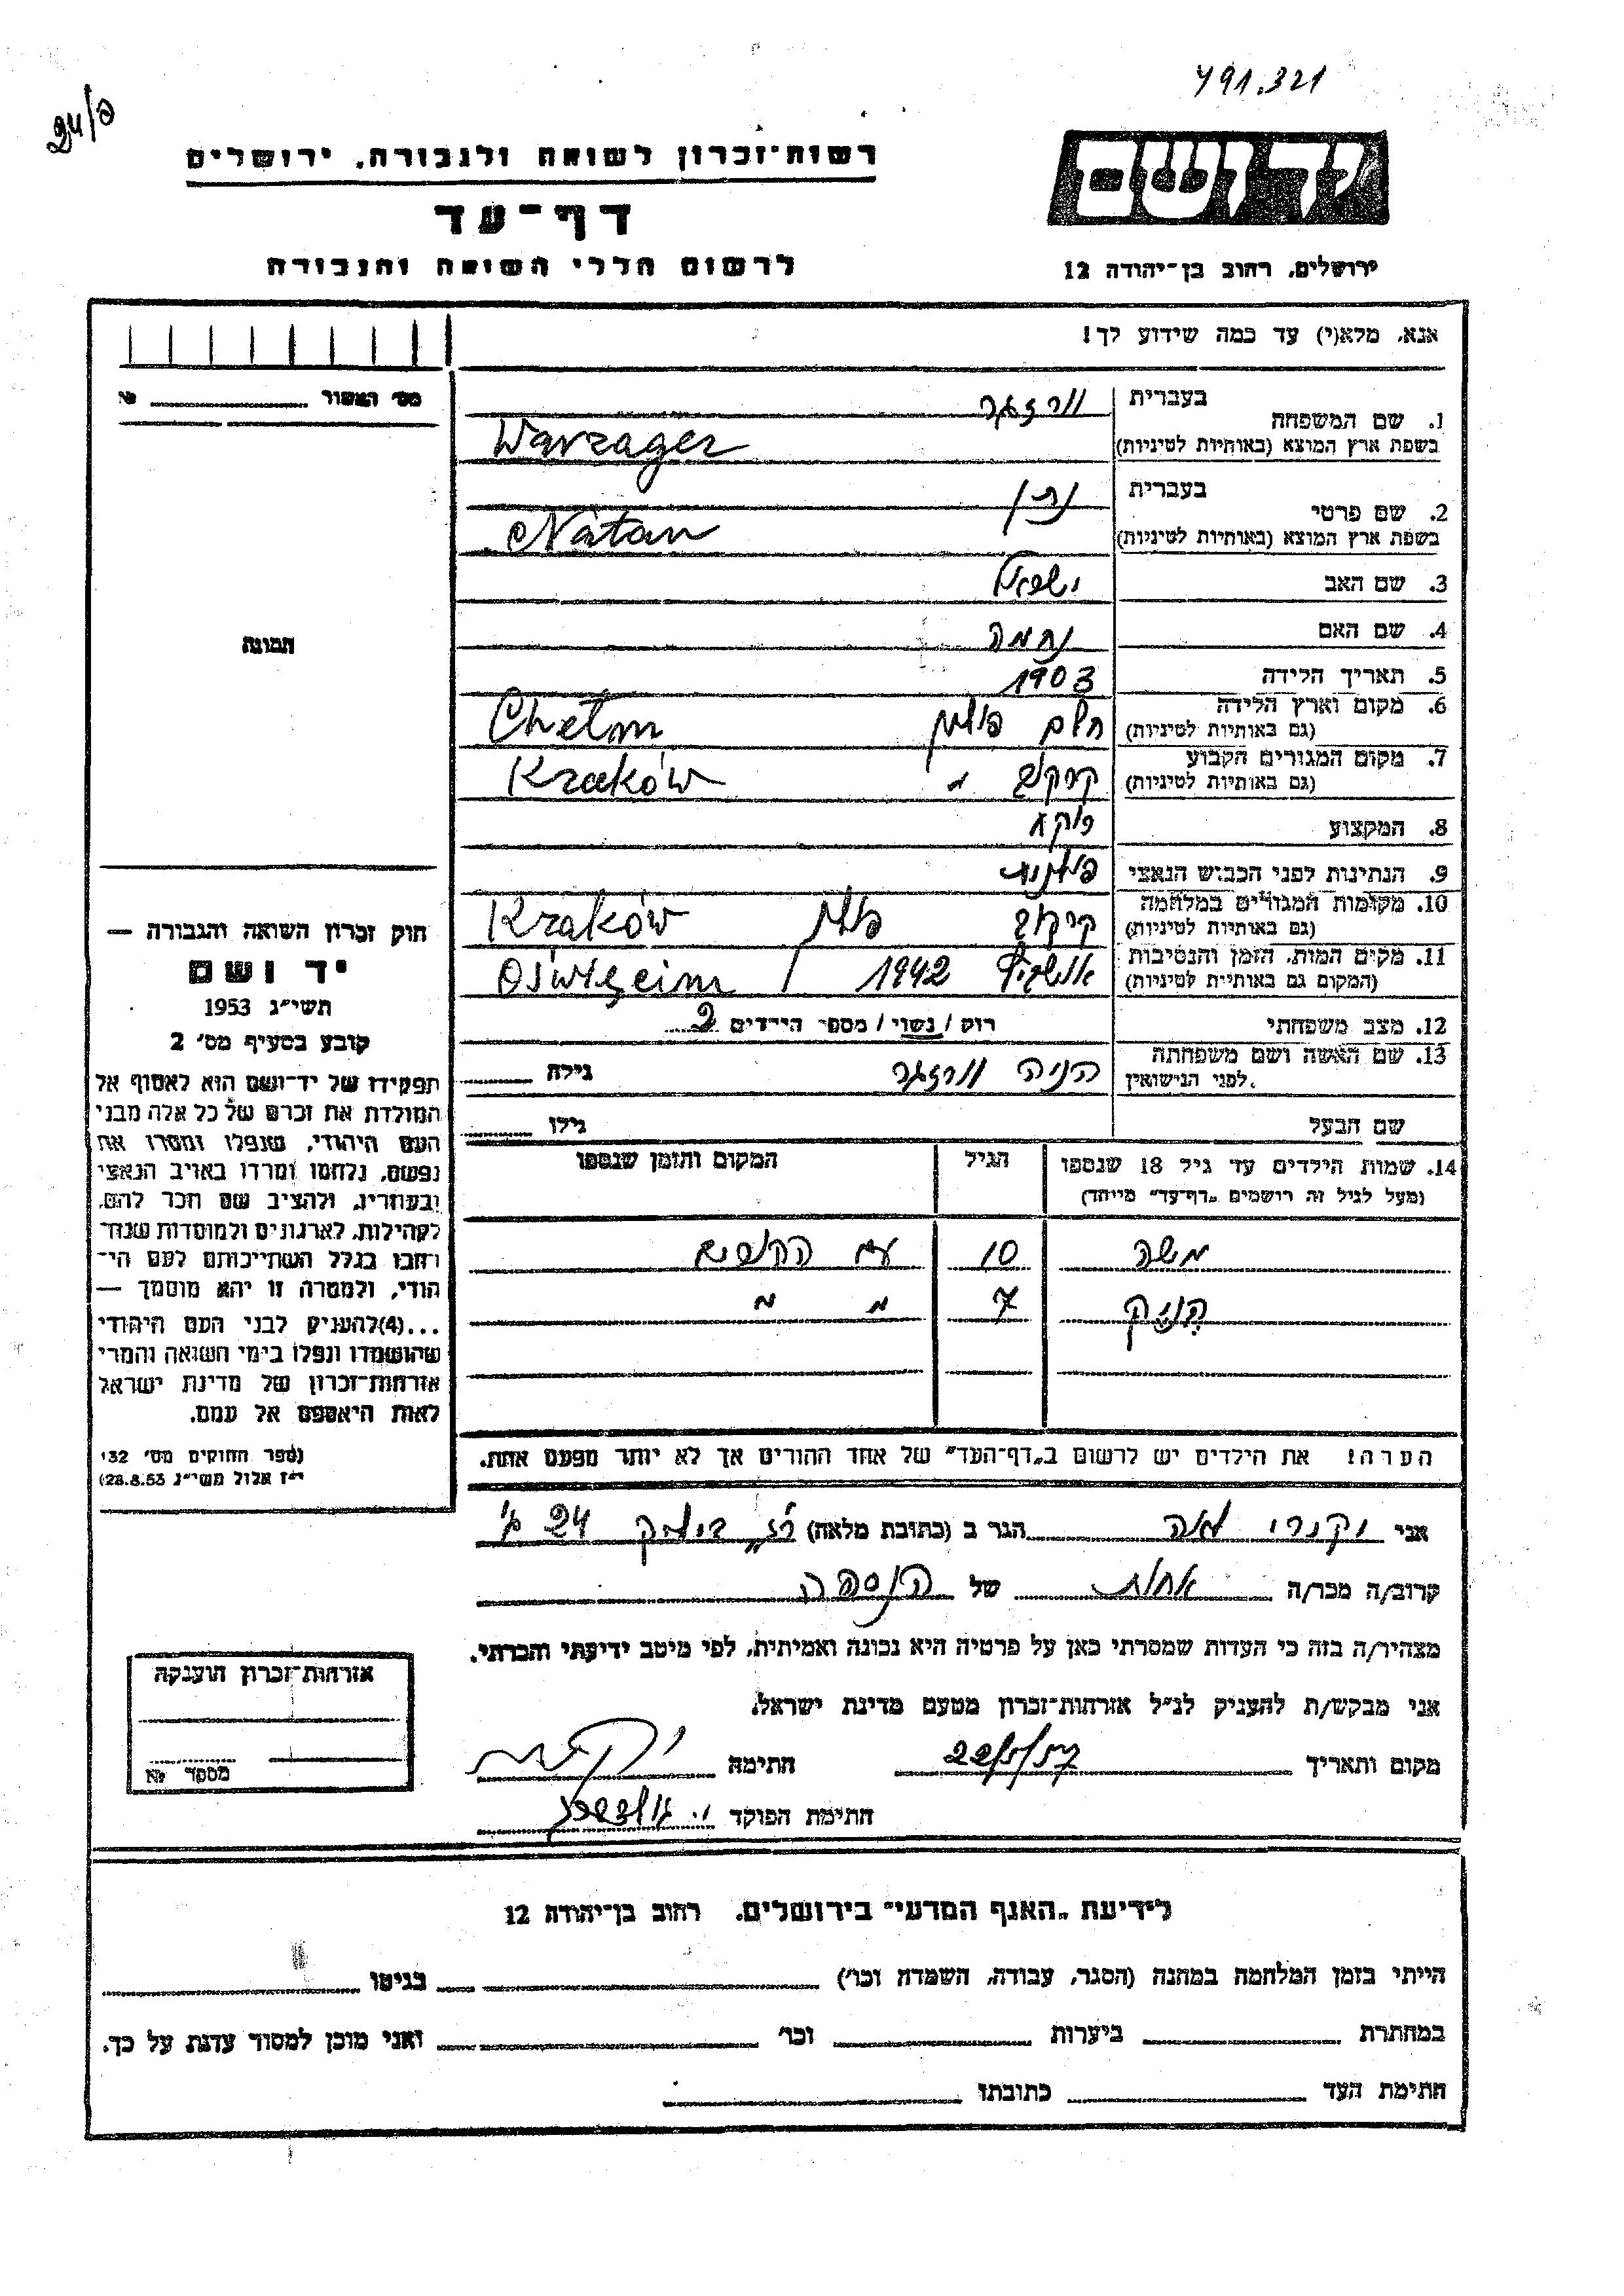 791.321
24/פ
יד ושם
רשות־זכרון לשואה ולגבורה, ירושלים
דף־עד
לרשום חללי השואה והגבורה
ירושלים, רחוב בן־יהודה 12
אנא, מלא(י) עד כמה שידוע לך!
מס׳ האשור №
1. שם המשפחה בעברית ורזגר
בשפת ארץ המוצא (באותיות לטיניות) Warzager
2. שם פרטי בעברית נתן
בשפת ארץ המוצא (באותיות לטיניות) Natan
3. שם האב ישראל
4. שם האם נחמה
5. תאריך הלידה 1903
6. מקום וארץ הלידה חלם פולין Chełm
(גם באותיות לטיניות)
7. מקום המגורים הקבוע קרקוב Kraków
(גם באותיות לטיניות)
8. המקצוע
9. הנתינות לפני הכבוש הנאצי פולנית
10. מקומות המגורים במלחמה קרקוב פולין Kraków
(גם באותיות לטיניות)
11. מקום המות, הזמן והנסיבות אושויץ 1942 / Oświęcim
(המקום גם באותיות לטיניות)
12. מצב משפחתי רוק / נשוי / מספר הילדים 2
13. שם האשה ושם משפחתה הניה ורזגר גילה
לפני הנישואין.
שם הבעל גילו
14. שמות הילדים עד גיל 18 שנספו הגיל המקום והזמן שנספו
(מעל לגיל זה רושמים „דף־עד״ מיוחד)
משה 10 עם ההורים
הניק 7 " "
הערה! את הילדים יש לרשום ב„דף־העד״ של אחד ההורים אך לא יותר מפעם אחת.
תמונה
חוק זכרון השואה והגבורה —
יד ושם
תשי״ג 1953
קובע בסעיף מס׳ 2
תפקידו של יד־ושם הוא לאסוף אל
המולדת את זכרם של כל אלה מבני
העם היהודי, שנפלו ומסרו את
נפשם, נלחמו ומרדו באויב הנאצי
ובעוזריו, ולהציב שם וזכר להם,
לקהילות, לארגונים ולמוסדות שנח־
רחבו בגלל השתייכותם לעם הי־
הודי, ולמטרה זו יהא מוסמך —
...(4)להעניק לבני העם היהודי
שהושמדו ונפלו בימי השואה והמרי
אזרחות־זכרון של מדינת ישראל
לאות היאספם אל עמם.
(ספר החוקים מס׳ 132
י״ז אלול תשי״ג 28.8.53)
אני הגר ב (כתובת מלאה) 24
קרוב/ה מכר/ה אחות של הנספה
מצהיר/ה בזה כי העדות שמסרתי כאן על פרטיה היא נכונה ואמיתית, לפי מיטב ידיעתי והכרתי.
אני מבקש/ת להעניק לנ״ל אזרחות־זכרון מטעם מדינת ישראל.
מקום ותאריך 22/5/57 חתימה
חתימת הפוקד
אזרחות־זכרון הוענקה
מספר №
לידיעת „האגף המדעי״ בירושלים, רחוב בן־יהודה 12
הייתי בזמן המלחמה במחנה (הסגר, עבודה, השמדה וכו׳) בגיטו
במחתרת ביערות וכו׳ ואני מוכן למסור עדות על כך.
חתימת העד כתובתו